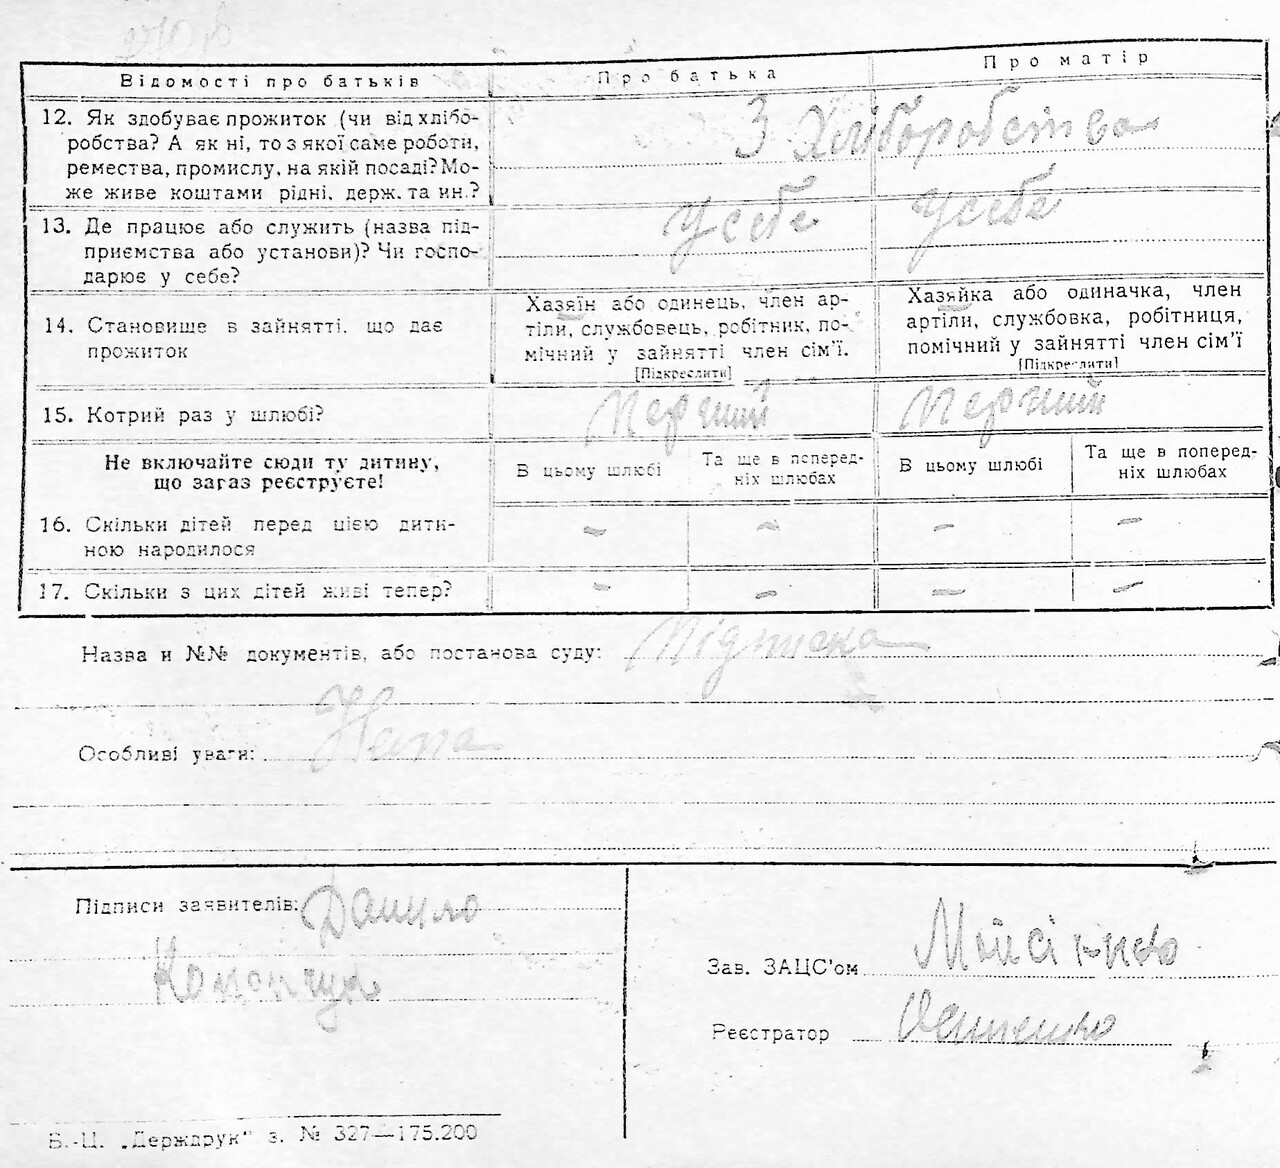 Відомості про батьків
Про батька
Про матір
12. Як здобуває прожиток (чи від хлібо-
робства? А як ні, то з якої саме роботи,
ремества, промислу, на якій посаді? Мо-
же живе коштами рідні, держ. та ин.?
З Хліборобства
13. Де працює або служить (назва під-
приємства або установи)? Чи госпо-
дарює у себе?
У себе
У себе
14. Становище в зайнятті, що дає
прожиток
Хазяїн або одинець, член ар-
тіли, службовець, робітник, по-
мічний у зайнятті член сім'ї.
[Підкреслити]
Хазяйка або одиначка, член
артіли, службовка, робітниця,
помічний у зайнятті член сім'ї
[Підкреслити]
15. Котрий раз у шлюбі?
Перший
Перший
Не включайте сюди ту дитину,
що зараз реєструєте!
В цьому шлюбі
Та ще в поперед-
ніх шлюбах
В цьому шлюбі
Та ще в поперед-
ніх шлюбах
16. Скільки дітей перед цією дити-
ною народилося
– – – –
17. Скільки з цих дітей живі тепер?
– – – –
Назва и №№ документів, або постанова суду: Підписка
Особливі уваги:
Підписи заявителів: Данило
Зав. ЗАЦС'ом
Реєстратор
В.-Ц. „Держдрук" з. № 327—175.200